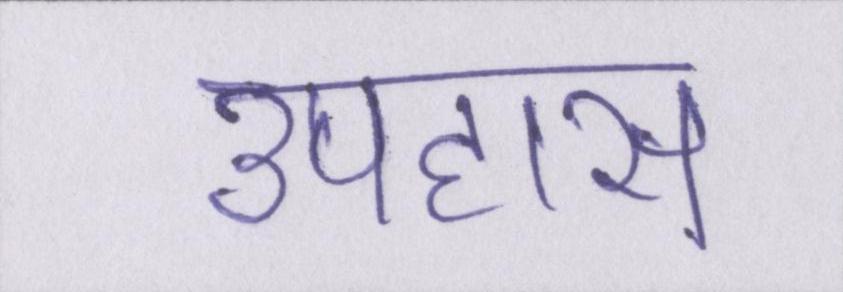 उपहास